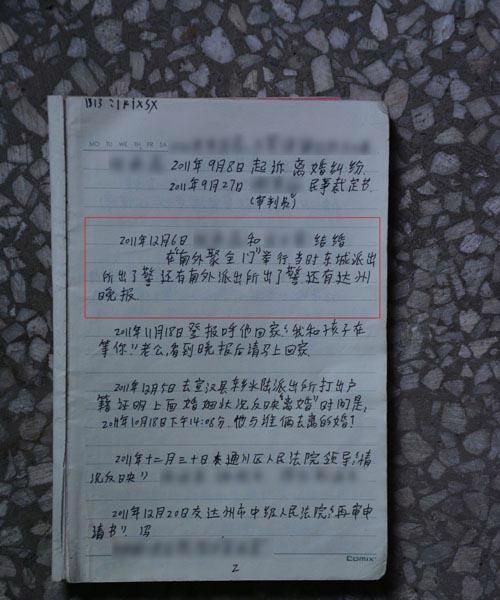 MO TU WE TH FR SA
2011年9月8日起诉离婚纠纷.
2011年9月27日 民事裁定书.
(审判员)
2011年12月6日 和 结婚
在"南外聚全门"举行,当时东城派出
所出了警,还有南外派出所出了警,还有达州
晚报.
2011年11月18日登报呼他回家:"我和孩子在
等你!"老公,看到晚报后请马上回家.
2011年12月5日去宣汉县 派出所打出户
籍证明上面婚姻状况反映"离婚"时间是,
2011年10月18日下午14:06分.他与谁俩去离的婚?
2011年十二月三十日来通川区人民法院领导"情
况反映"
2011年12月20日交达州市中级人民法院"再审申
请书"
Comix
2